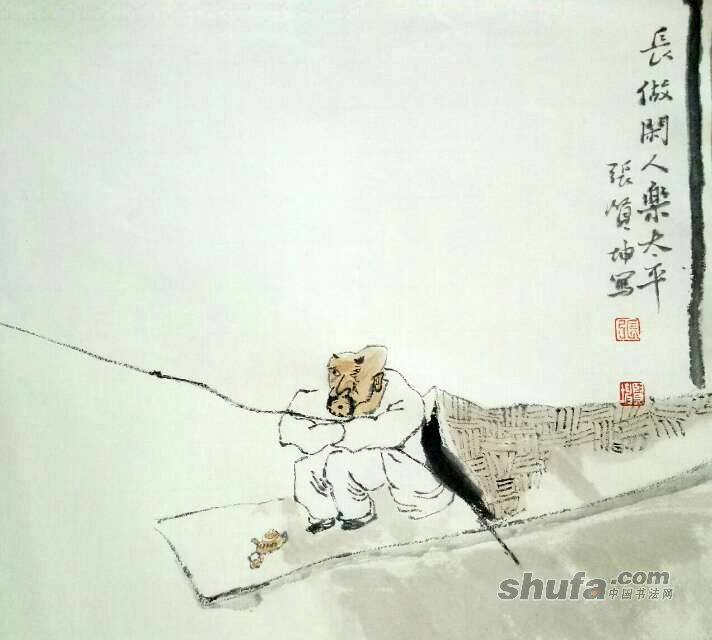 長做閑人樂太平
張質坤寫
shufa.com
中国书法网